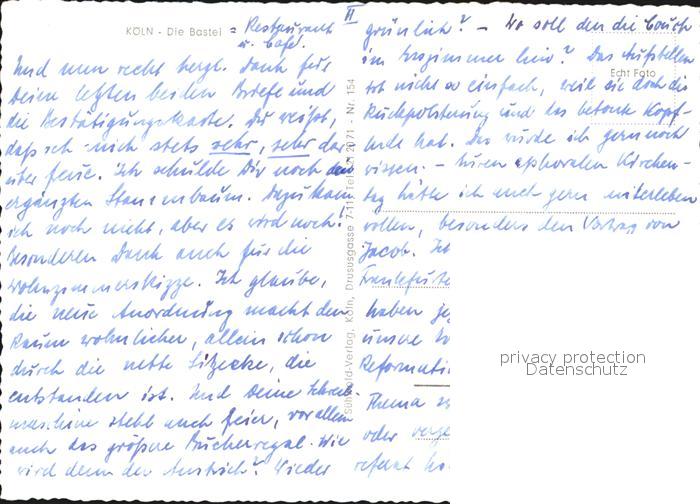 KÖLN - Die Bastei = Restaurant
u. Café.
II
Und nun recht herzl. Dank für
Deine letzten beiden Briefe und
die Bestätigungskarte. Du weißt,
daß ich mich stets sehr, sehr dar-
über freue. Ich schulde Dir noch den
ergänzten Stammbaum. Dazu kam
ich noch nicht, aber es wird noch.
Besonderen Dank auch für die
Wohnzimmerskizze. Ich glaube,
die neue Anordnung macht den
Raum wohnlicher, allein schon
durch die nette Sitzecke, die
entstanden ist. Und Deine Schreib-
maschine steht auch fein, vor allem
auch das größere Bücherregal. Wie
wird denn der Anstrich? Wieder
grünlich? - Wo soll denn die Couch
im hin? Das Aufstellen
ist nicht so einfach, weil sie doch die
Rückpolsterung und das betonte Kopf-
ende hat. Das würde ich gern noch
wissen. - Euren ephoralen Kirchen-
tag hätte ich auch gern miterleben
wollen, besonders den Vortrag von
Jacob. Ich
Frankfurter
haben
unsere
Reformati
Thema
oder
referat
Echt Foto
Verlag, Köln, Drususgasse 7-11, Tel. 21 20 71 - Nr. 154
privacy protection
Datenschutz